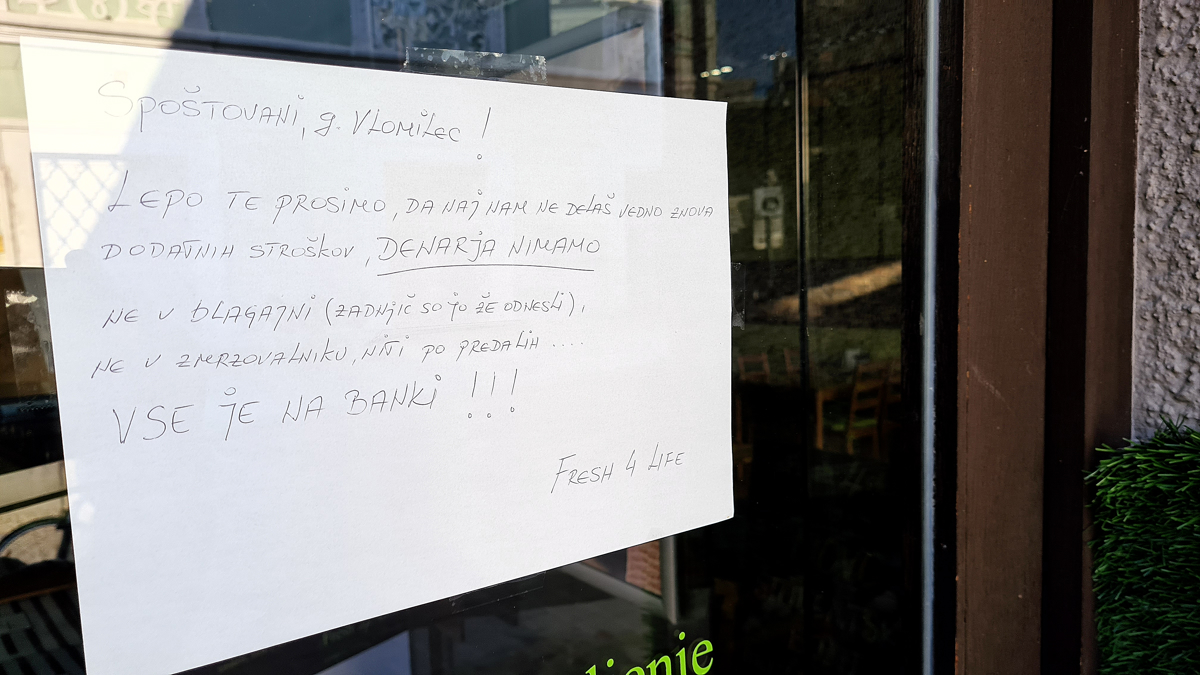 SPOŠTOVANI, g. VLOMILEC !
LEPO TE PROSIMO, DA NAJ NAM NE DELAŠ VEDNO ZNOVA
DODATNIH STROŠKOV, DENARJA NIMAMO
NE V BLAGAJNI (ZADNJIČ SO JO ŽE ODNESLI),
NE V ZMRZOVALNIKU, NITI PO PREDALIH ....
VSE JE NA BANKI !!!
FRESH 4 LIFE